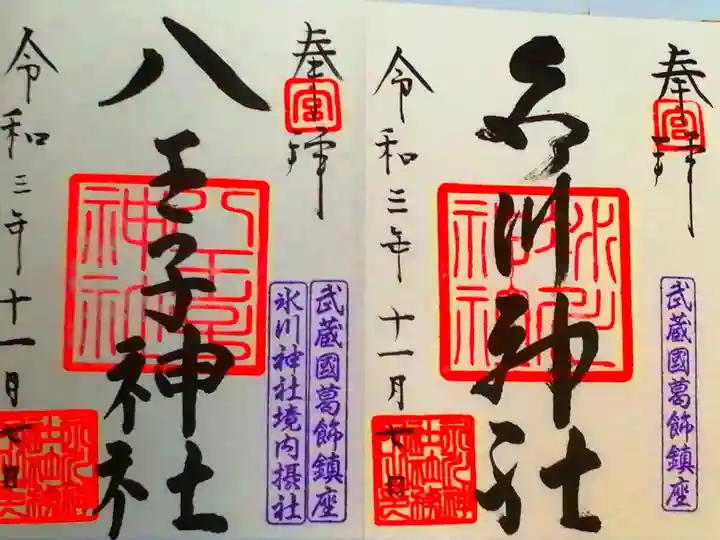 奉拝
武蔵國葛飾鎮座
氷川神社
令和三年十一月七日
奉拝
武蔵國葛飾鎮座
氷川神社境内摂社
八王子神社
令和三年十一月七日